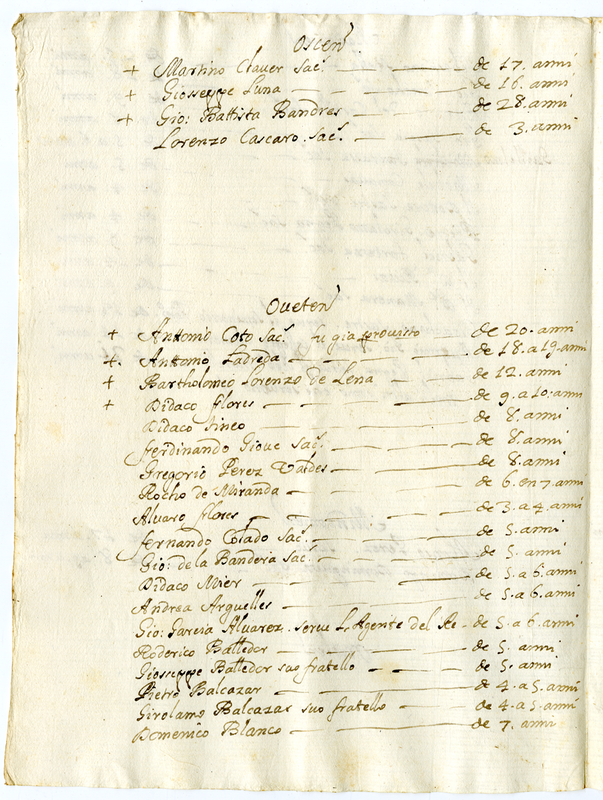 Oscen
+ Martino Claver Sac. de 17. anni
+ Gioseppe Luna de 16. anni
+ Gio: Battista Bandres de 28. anni
Lorenzo Cascaro. Sac. de 3. anni
Oveten
+ Anttonio Coto Sac. fu gia provisto de 20. anni
+. Anttonio Ladreda de 18. a 19. anni
+ Bartholomeo Lorenzo de Lena de 12. anni
+ Didaco flores de 9. a 10: anni
Didaco Sineo de 8. anni
fferdinando Gioue Sac. de 8. anni
Gregorio Perez Valdes de 8. anni
Rocho de Miranda de 6. en 7. anni
Alvaro flores de 3. a 4. anni
ffernando Corado Sac. de 5. anni
Gio: de la Banderia Sac. de 5. anni
Didaco Mier de 5. a 6. anni
Andrea Arguelles de 5. a 6. anni
Gio: Garcia Alvarez. serue L'Agente del Re de 5. a 6. anni
Roderico Balledor de 5. anni
Gioseppe Balledor suo fratello de 5. anni
Pietro Balcazar de 4. a 5. anni
Girolamo Balcazar suo fratello de 4. a 5. anni
Domenico Blanco de 7. anni